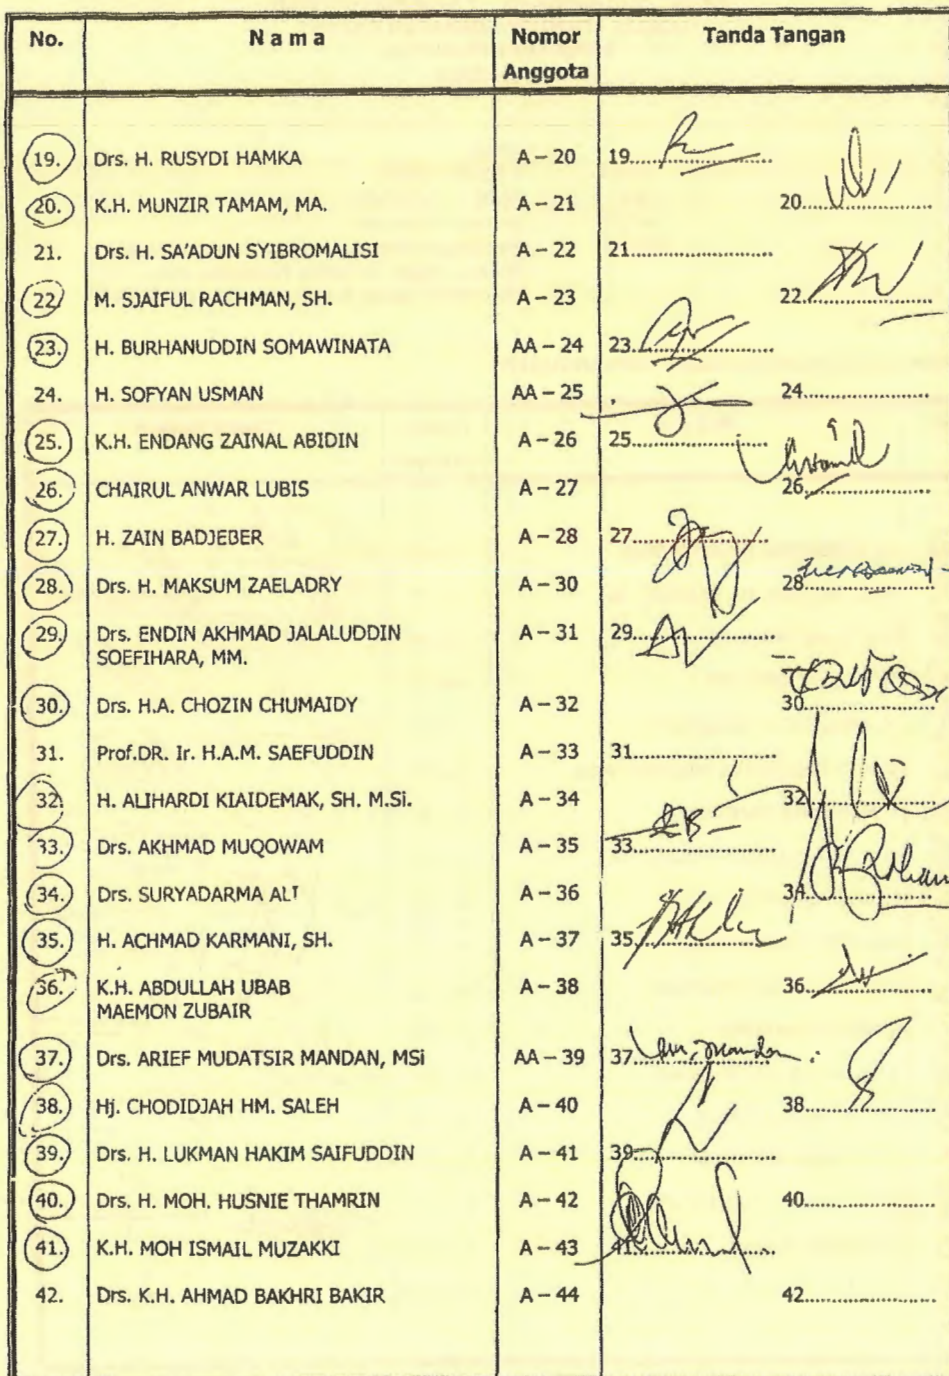 No. N a m a Nomor Anggota Tanda Tangan
19. Drs. H. RUSYDI HAMKA A – 20 19.....................
20. K.H. MUNZIR TAMAM, MA. A – 21 20.....................
21. Drs. H. SA'ADUN SYIBROMALISI A – 22 21.....................
22 M. SJAIFUL RACHMAN, SH. A – 23 22.....................
23. H. BURHANUDDIN SOMAWINATA AA – 24 23.....................
24. H. SOFYAN USMAN AA – 25 24.....................
25. K.H. ENDANG ZAINAL ABIDIN A – 26 25.....................
26. CHAIRUL ANWAR LUBIS A – 27 26.....................
27. H. ZAIN BADJEBER A – 28 27.....................
28. Drs. H. MAKSUM ZAELADRY A – 30 28.....................
29. Drs. ENDIN AKHMAD JALALUDDIN A – 31 29.....................
SOEFIHARA, MM.
30. Drs. H.A. CHOZIN CHUMAIDY A – 32 30.....................
31. Prof.DR. Ir. H.A.M. SAEFUDDIN A – 33 31.....................
32. H. ALIHARDI KIAIDEMAK, SH. M.Si. A – 34 32.....................
33. Drs. AKHMAD MUQOWAM A – 35 33.....................
34. Drs. SURYADARMA ALI A – 36 34.....................
35. H. ACHMAD KARMANI, SH. A – 37 35.....................
36. K.H. ABDULLAH UBAB A – 38 36.....................
MAEMON ZUBAIR
37. Drs. ARIEF MUDATSIR MANDAN, MSi AA – 39 37.....................
38. Hj. CHODIDJAH HM. SALEH A – 40 38.....................
39. Drs. H. LUKMAN HAKIM SAIFUDDIN A – 41 39.....................
40. Drs. H. MOH. HUSNIE THAMRIN A – 42 40.....................
41. K.H. MOH ISMAIL MUZAKKI A – 43 41.....................
42. Drs. K.H. AHMAD BAKHRI BAKIR A – 44 42.....................